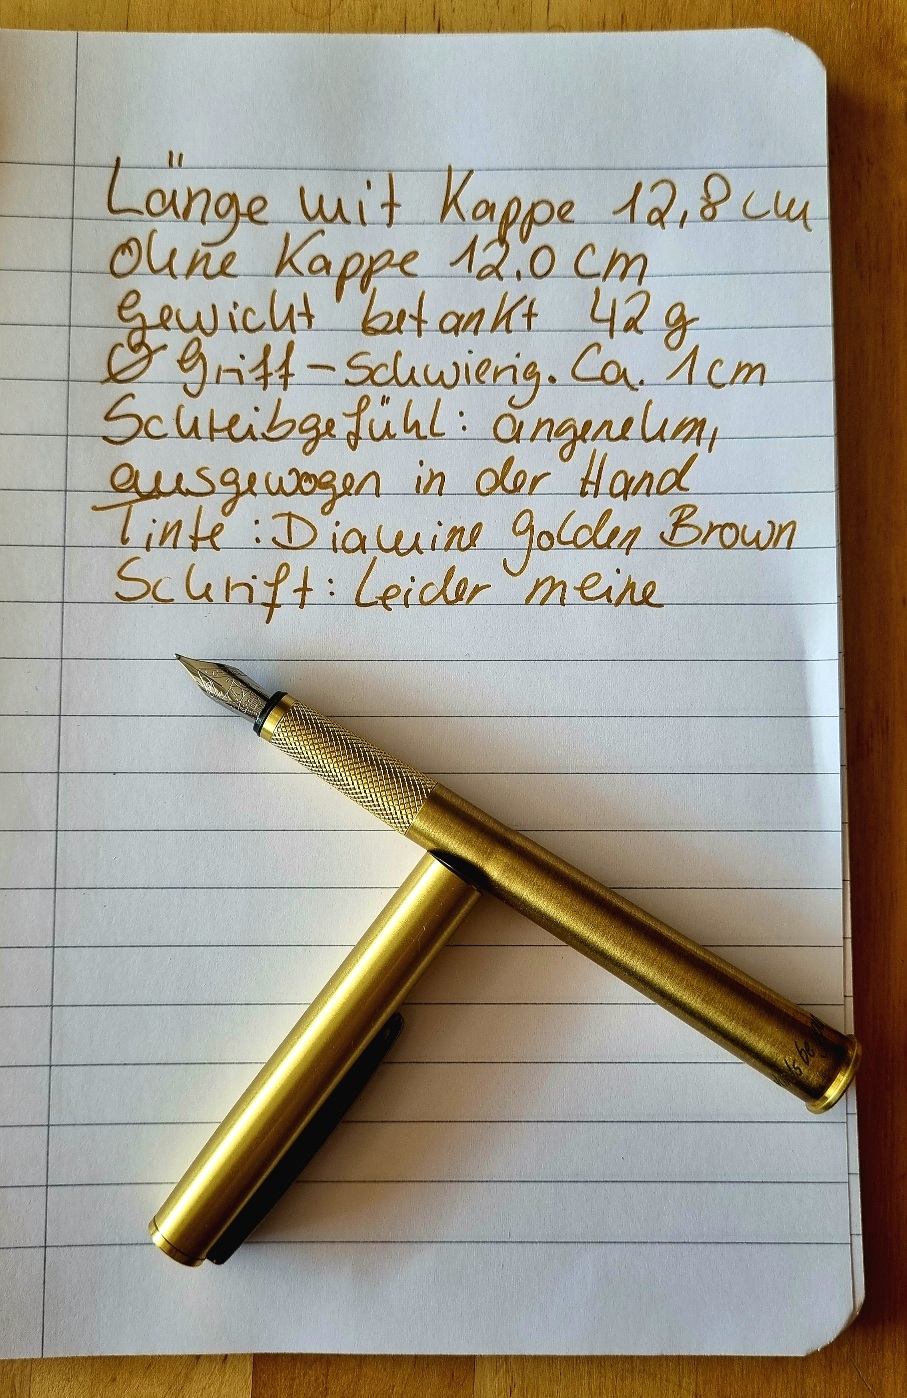 Länge mit Kappe 12,8 cm
ohne Kappe 12.0 cm
Gewicht betankt 42 g
Ø Griff – Schwierig. Ca. 1 cm
Schreibgefühl: angenehm,
ausgewogen in der Hand
Tinte: Diamine Golden Brown
Schrift: Leider meine